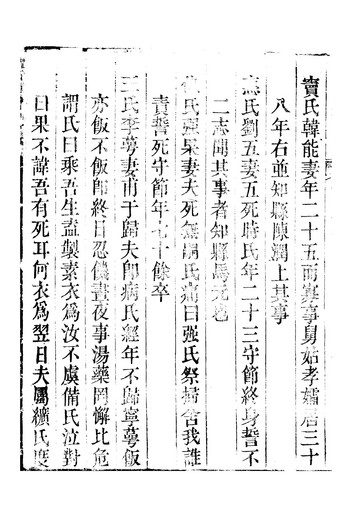 賣氏韓能妻年二十五而寡事舅姑孝孀居三十
八年右並知縣陳潤上其事
氏劉五妻五死時氏年二十三守節終身誓不
二志聞其事者知縣馬元也
氏强杲妻夫死無嗣氏痛曰强氏祭掃舍我誰
責誓死守節年七十餘卒
王氏李蕚妻甫于歸夫卽病氏經年不歸寧蕚飯
亦飯不飯卽終日忍饑晝夜事湯藥罔懈比危
謂氏曰乘吾生盍製素衣爲汝不虞備氏泣對
曰果不諱吾有死耳何衣爲翌日夫屬纊氏度